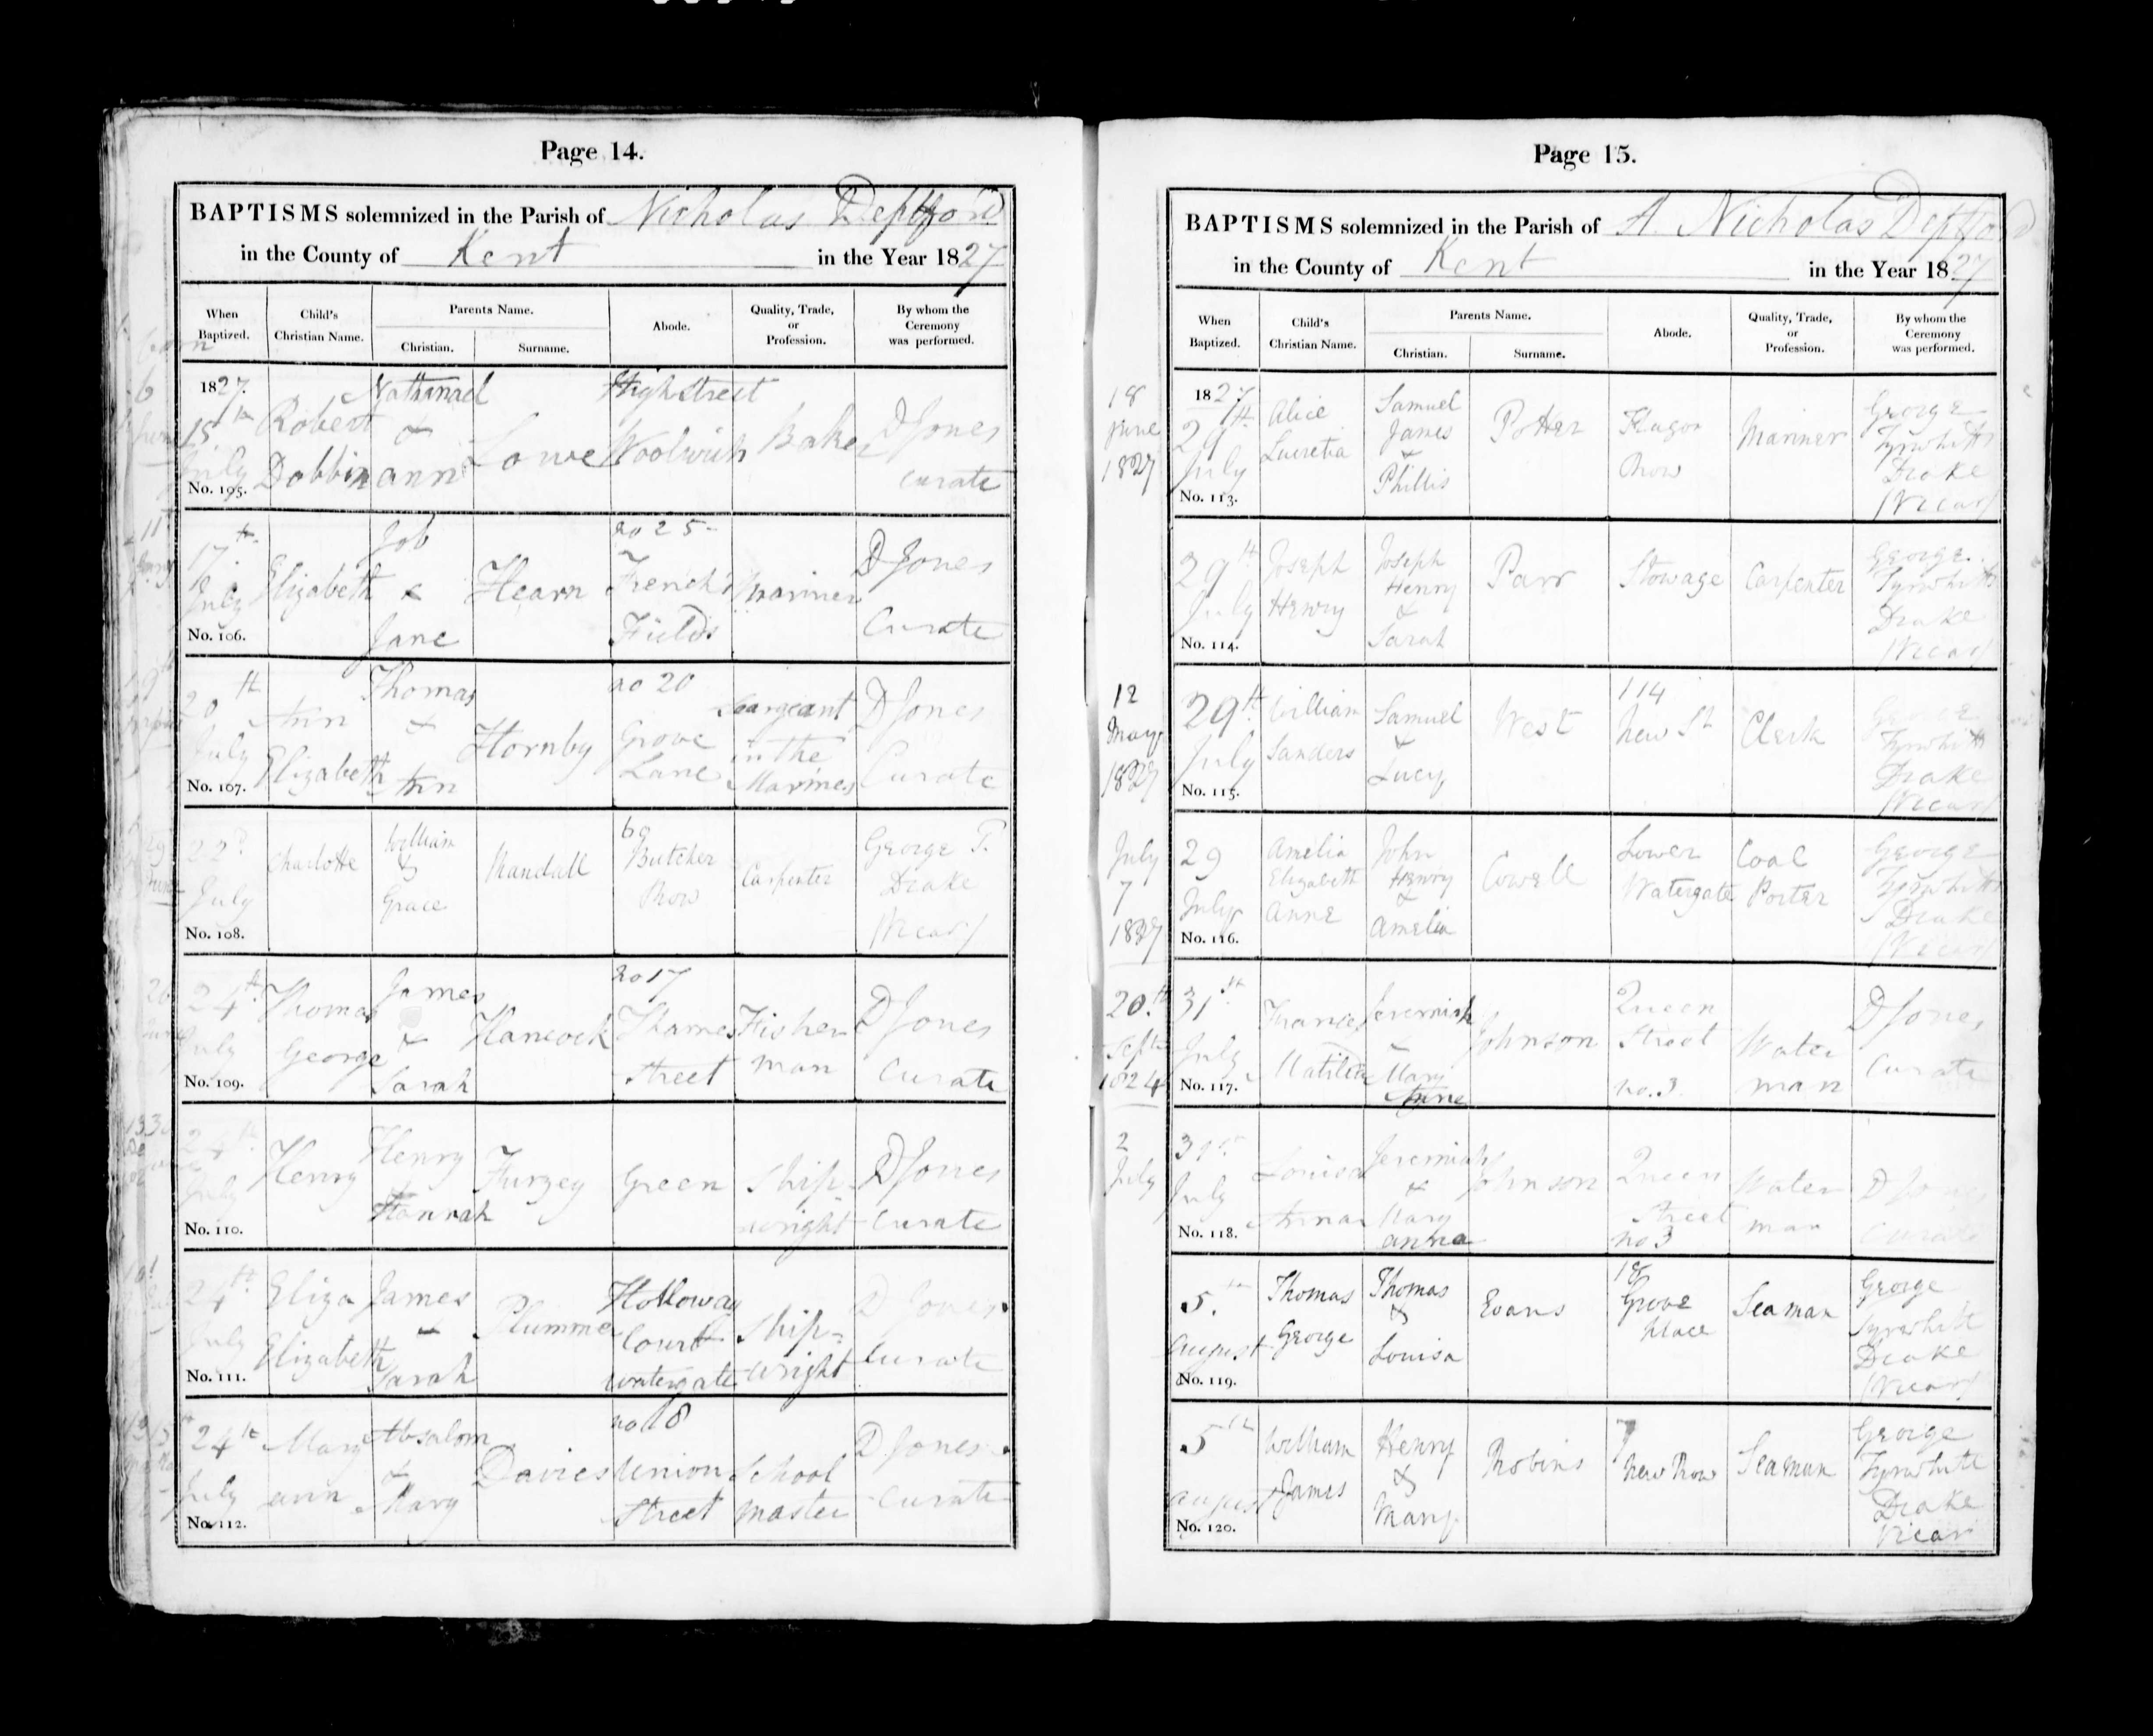 Page 14.
BAPTISMS solemnized in the Parish of Nicholas Deptford
in the County of Kent in the Year 1827
When Baptized.
Child's Christian Name.
Parents Name.
Christian.
Surname.
Abode.
Quality, Trade, or Profession.
By whom the Ceremony was performed.
1827.
15th July
No. 105.
Robert Dobbin
Nathanael & ann
Lowe
High Street Woolwich
Baker
D Jones curate
17th July
No. 106.
Elizabeth
Job & Jane
Hearn
no 25 French's Fields
Mariner
D Jones Curate
20th July
No. 107.
Ann Elizabeth
Thomas & Ann
Hornby
no 20 Grove Lane
Seargeant in the Marines
D Jones Curate
22d July
No. 108.
Charlotte
William & Grace
Randall
Butcher Row
Carpenter
George T. Drake (Vicar)
24th July
No. 109.
Thomas George
James & Sarah
Hancock
no 17 Thames Street
Fisher man
D Jones Curate
24th July
No. 110.
Henry
Henry Hannah
Furzey
Green
Ship-wright
D Jones Curate
24th July
No. 111.
Eliza Elizabeth
James & Sarah
Plummer
Holloway Court watergate
Ship-wright
D Jones Curate
24th July
No. 112.
Mary ann
Absalom & Mary
Davies
no 18 Union Street
School master
D Jones Curate
Page 15.
BAPTISMS solemnized in the Parish of St. Nicholas Deptford
in the County of Kent in the Year 1827
When Baptized.
Child's Christian Name.
Parents Name.
Christian.
Surname.
Abode.
Quality, Trade, or Profession.
By whom the Ceremony was performed.
18 June 1827
1827
29th July
No. 113.
Alice Lucretia
Samuel James & Phillis
Potter
Flagon Row
Mariner
George Tyrwhitt Drake (Vicar)
29th July
No. 114.
Joseph Henry
Joseph Henry & Sarah
Parr
Stowage
Carpenter
George Tyrwhitt Drake (Vicar)
12 May 1827
29th July
No. 115.
William Sanders
Samuel & Lucy
West
114 New St
Clerk
George Tyrwhitt Drake (Vicar)
July 7 1827
29 July
No. 116.
Amelia Elizabeth Anne
John Henry & Amelia
Cowell
Lower Watergate
Coal Porter
George Tyrwhitt Drake (Vicar)
20th Septr 1824
31st July
No. 117.
Frances Matilda
Jeremiah & Mary Anne
Johnson
Queen Street no. 3
Water man
D Jones Curate
2 July
31st July
No. 118.
Louisa Anna
Jeremiah & Mary anna
Johnson
Queen Street no 3
Water man
D Jones Curate
5th August
No. 119.
Thomas George
Thomas & Louisa
Evans
18 Grove Place
Seaman
George Tyrwhitt Drake (Vicar)
5th August
No. 120.
William James
Henry & Mary
Robins
7 New Row
Seaman
George Tyrwhitt Drake Vicar